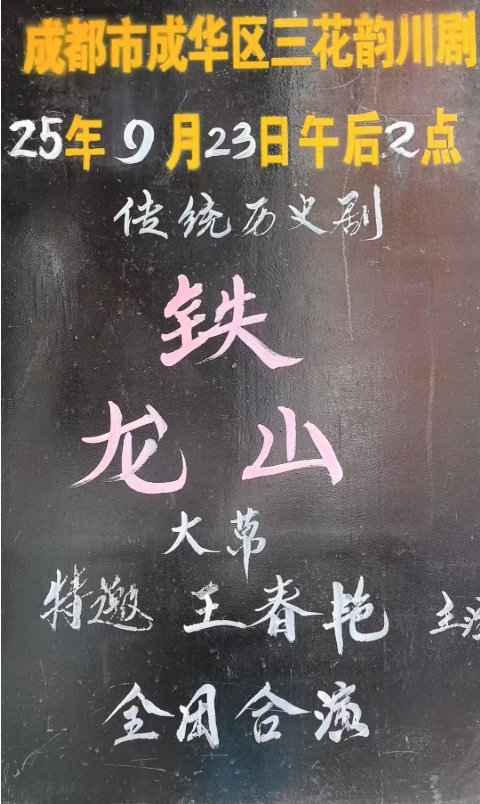 成都市成华区三花韵川剧
25年9月23日午后2点
传统历史剧
铁
龙山
大幕
特邀 王春艳 主演
全团合演